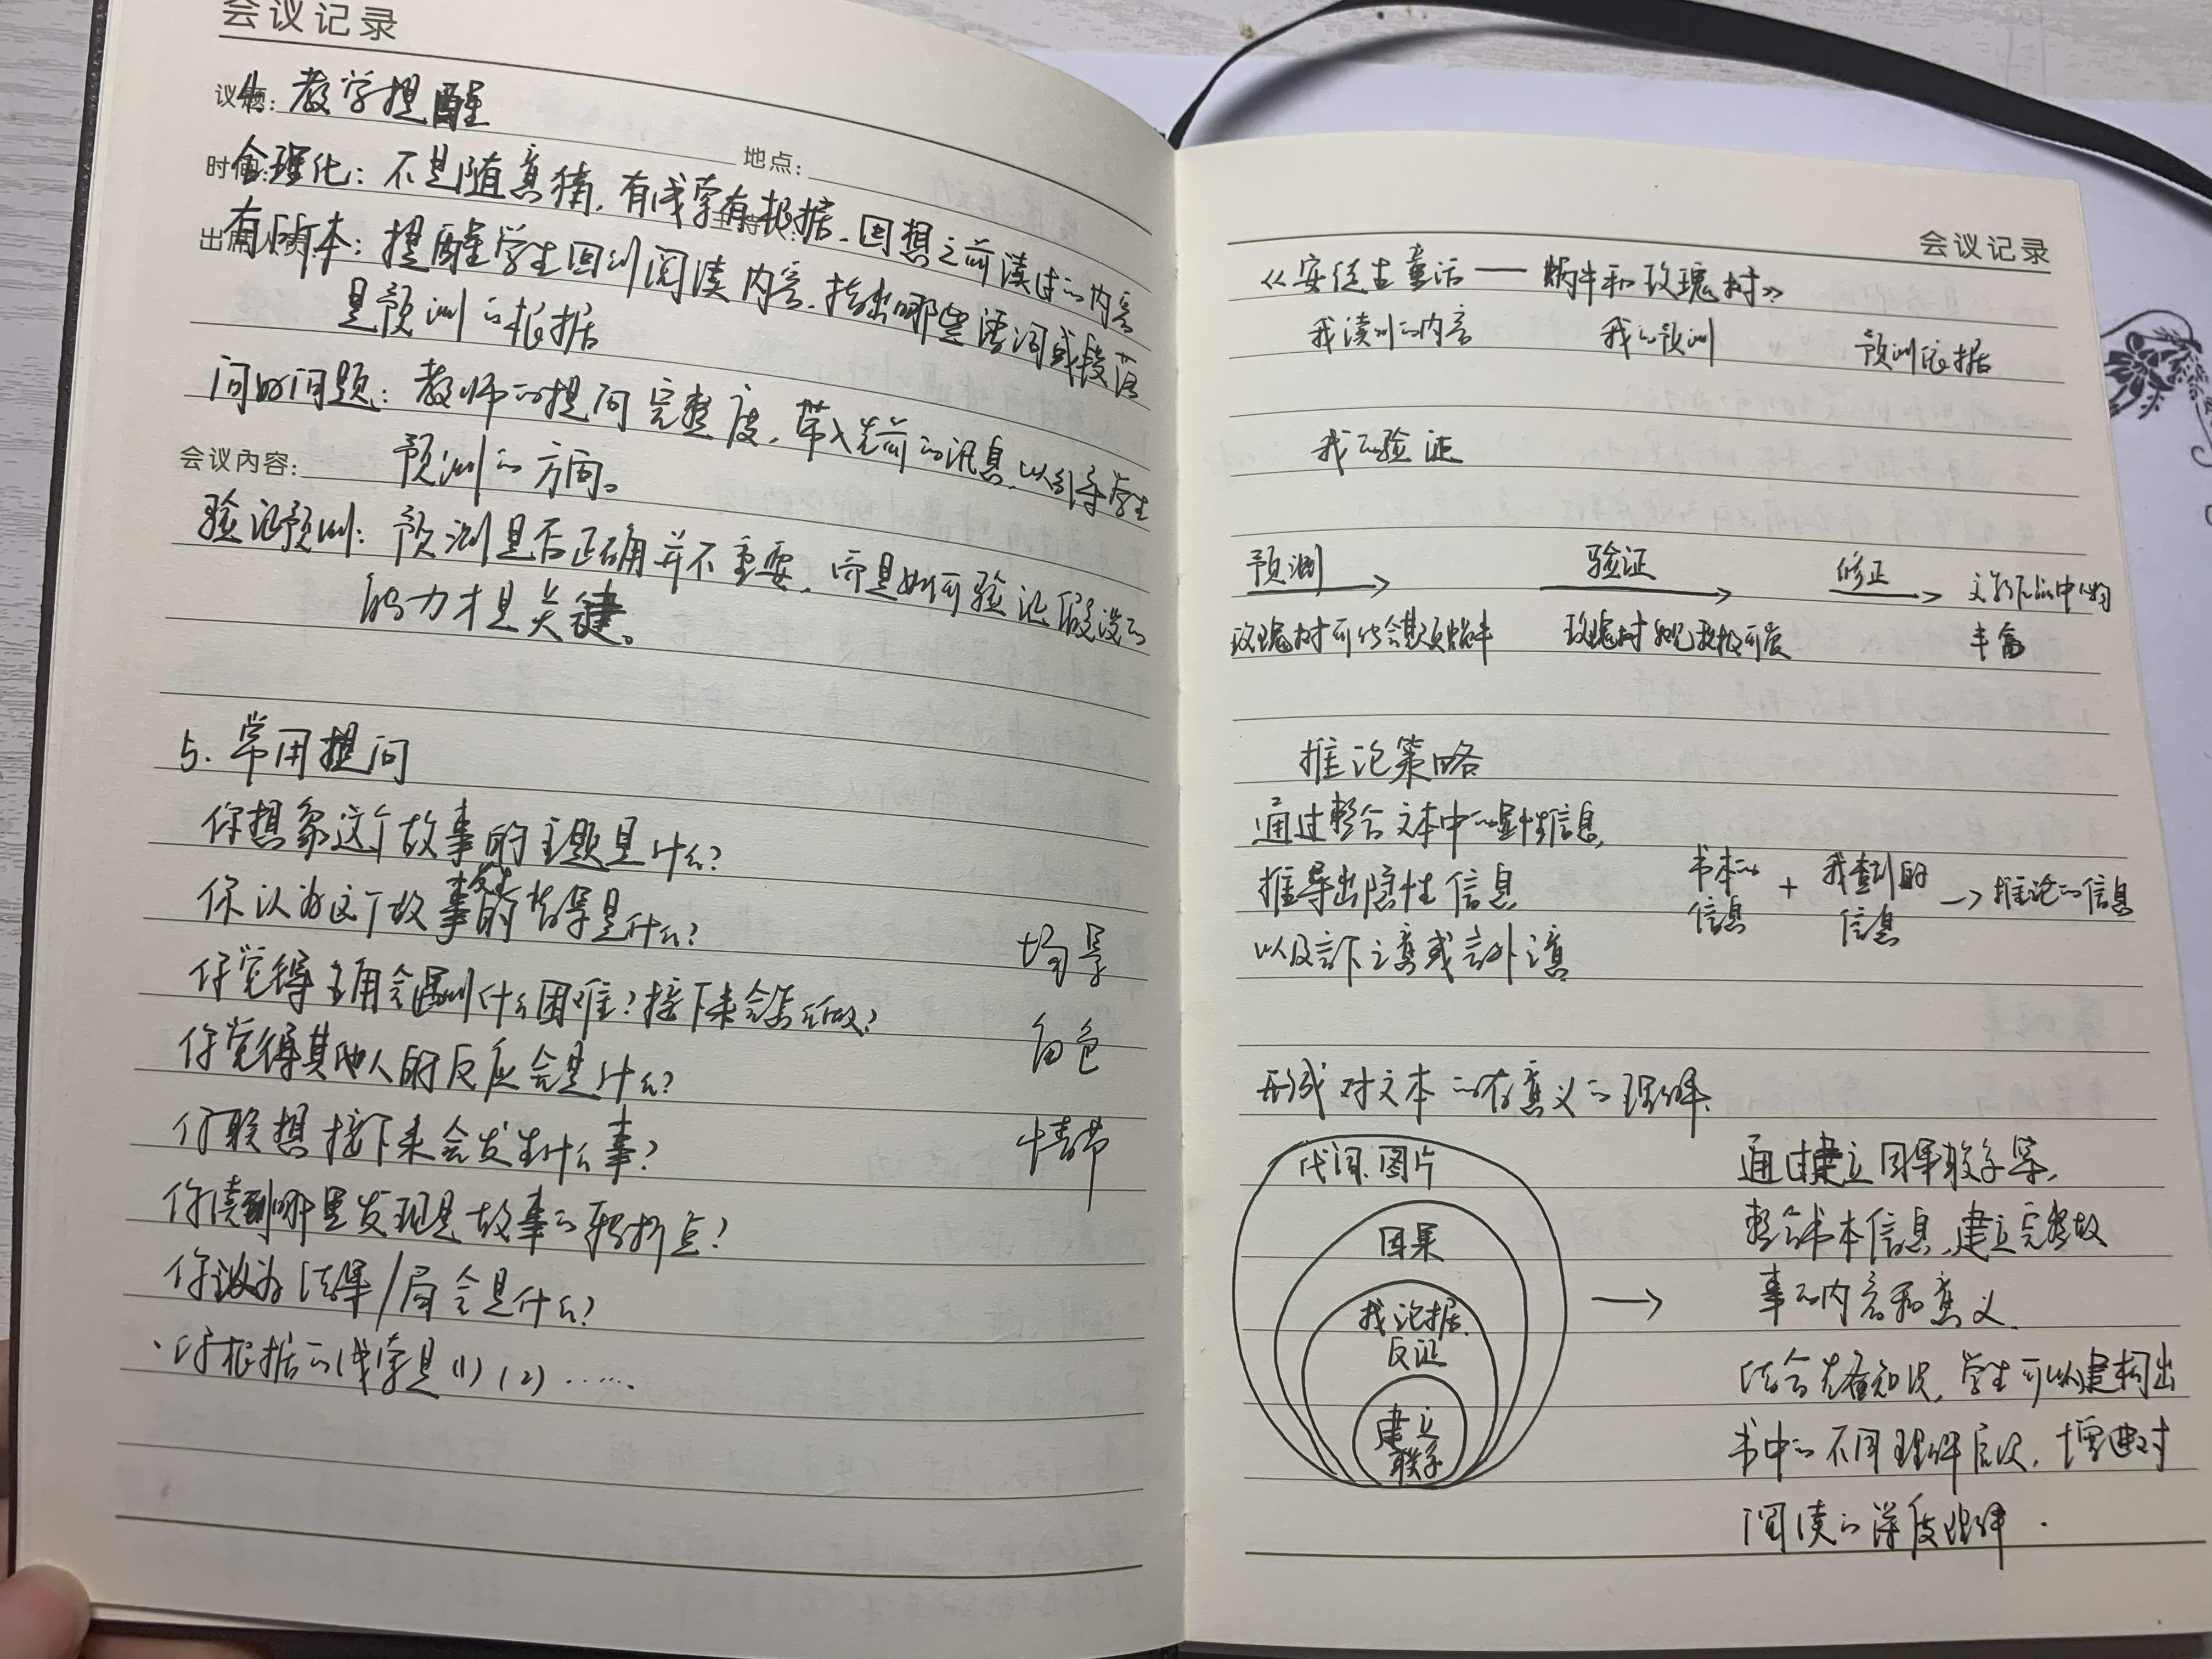 会议记录
议题:
4. 教学提醒
时间: 地点:
合理化：不是随意猜，有线索有根据，回想之前读过的内容
出席人员: 主持人:
有所本：提醒学生回到阅读内容，指出哪些语词或段落
是预测的根据
问好问题：教师的提问完整度，带入先前的讯息，以引导学生
会议内容:
预测的方向。
验证预测：预测是否正确并不重要，而是如何验证假设的
能力才是关键。
5. 常用提问
你想象这个故事的主题是什么？
你认为这个故事的背景是什么？ 场景
你觉得主角会遇到什么困难？接下来会怎么做？
你觉得其他人的反应会是什么？ 角色
你联想接下来会发生什么事？ 情节
你读到哪里发现是故事的转折点？
你认为结果/局会是什么？
· 你根据的线索是(1)(2)……
会议记录
《安徒生童话——蜗牛和玫瑰树》
我读到的内容 我的预测 预测依据
我的验证
预测 验证 修正
玫瑰树可能会 蜗牛 玫瑰树 可爱 丰富
推论策略
通过整合文本中的显性信息，
推导出隐性信息
以及言下之意或言外之意
书本的信息 + 我查到的信息 → 推论的信息
形成对文本的有意义的理解。
代词、图片
因果
找论据、
反证
建立
联系
通过建立因果联系等，
整合书本信息，建立完整故
事的内容和意义。
结合先备知识，学生可以建构出
书中的不同理解层次，增进对
阅读的深度理解.